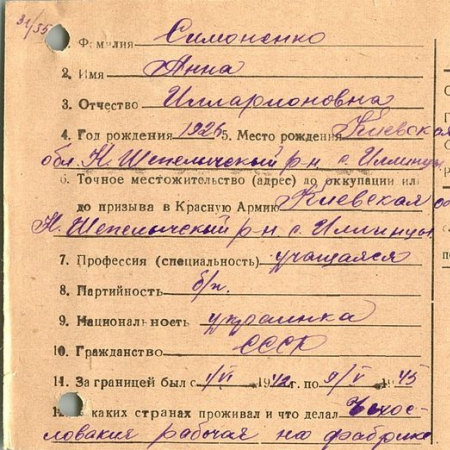 31/55
1. Фамилия Симоненко
2. Имя Анна
3. Отчество Илларионовна
4. Год рождения 1926 5. Место рождения Киевская
обл. Н. Шепеличский р-н с. Илинцы
6. Точное местожительство (адрес) до оккупации или
до призыва в Красную Армию Киевская об
Н. Шепеличский р-н с. Илинцы
7. Профессия (специальность) учащаяся
8. Партийность б/п.
9. Национальность украинка
10. Гражданство СССР
11. За границей был с 1/VI 1942 г. по 9/V 1945
12. В каких странах проживал и что делал Чехос-
ловакие рабочая на фабрике